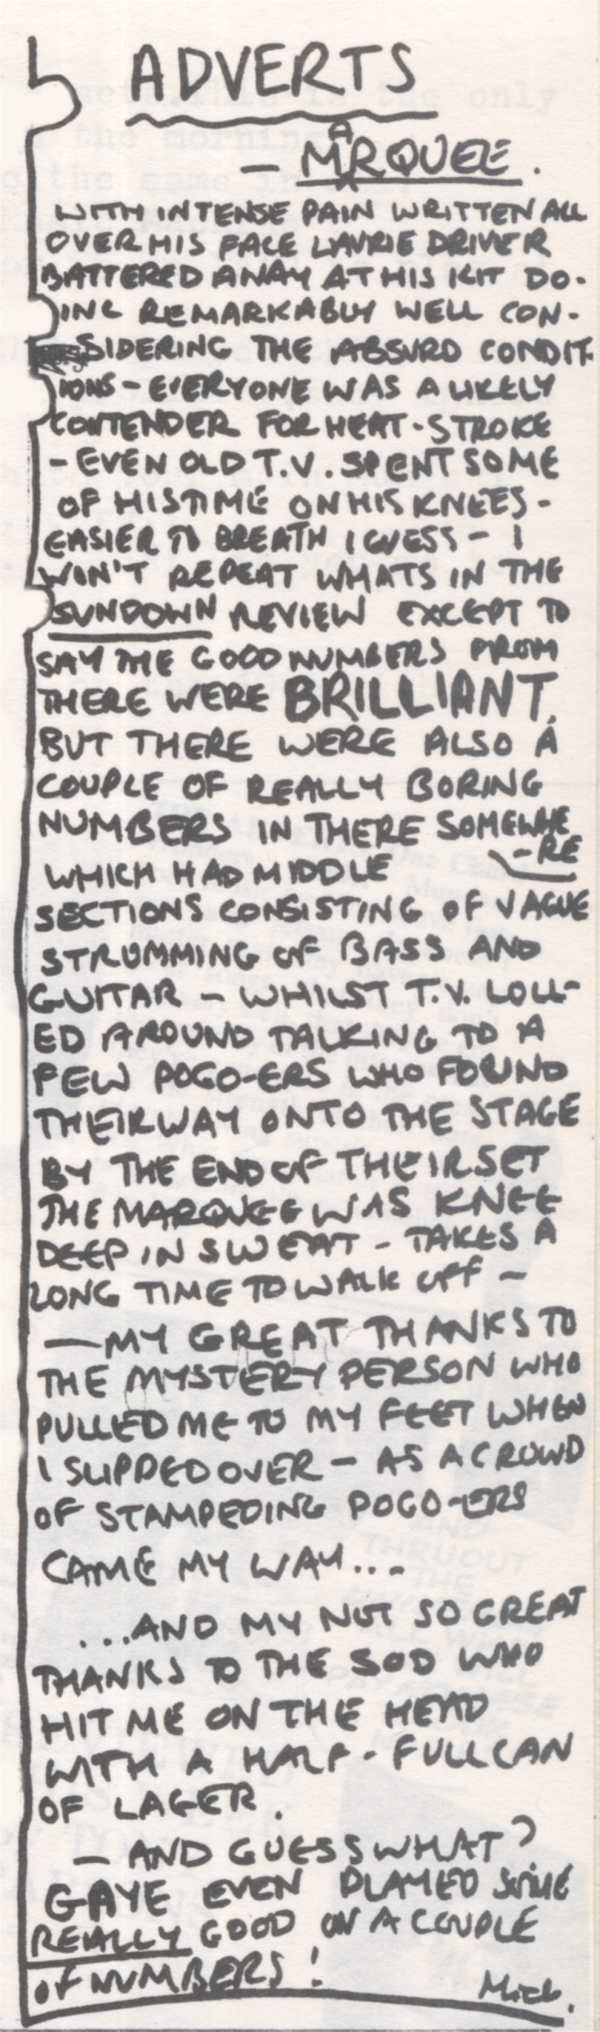 ADVERTS
- MARQUEE.
WITH INTENSE PAIN WRITTEN ALL
OVER HIS FACE LAURIE DRIVER
BATTERED AWAY AT HIS KIT DO-
ING REMARKABLY WELL CON-
SIDERING THE ABSURD CONDIT-
IONS - EVERYONE WAS A LIKELY
CONTENDER FOR HEAT-STROKE
- EVEN OLD T.V. SPENT SOME
OF HIS TIME ON HIS KNEES -
EASIER TO BREATH I GUESS - I
WON'T REPEAT WHATS IN THE
SUNDOWN REVIEW EXCEPT TO
SAY THE GOOD NUMBERS FROM
THERE WERE BRILLIANT,
BUT THERE WERE ALSO A
COUPLE OF REALLY BORING
NUMBERS IN THERE SOMEWHE
-RE
WHICH HAD MIDDLE
SECTIONS CONSISTING OF VAGUE
STRUMMING OF BASS AND
GUITAR - WHILST T.V. LOLL-
ED AROUND TALKING TO A
FEW POGO-ERS WHO FOUND
THEIR WAY ONTO THE STAGE
BY THE END OF THEIR SET
THE MARQUEE WAS KNEE
DEEP IN SWEAT - TAKES A
LONG TIME TO WALK OFF -
- MY GREAT THANKS TO
THE MYSTERY PERSON WHO
PULLED ME TO MY FEET WHEN
I SLIPPED OVER - AS A CROWD
OF STAMPEDING POGO-ERS
CAME MY WAY...
...AND MY NOT SO GREAT
THANKS TO THE SOD WHO
HIT ME ON THE HEAD
WITH A HALF-FULL CAN
OF LAGER.
- AND GUESS WHAT?
GAYE EVEN PLAYED SOME
REALLY GOOD ON A COUPLE
OF NUMBERS!
Mick.